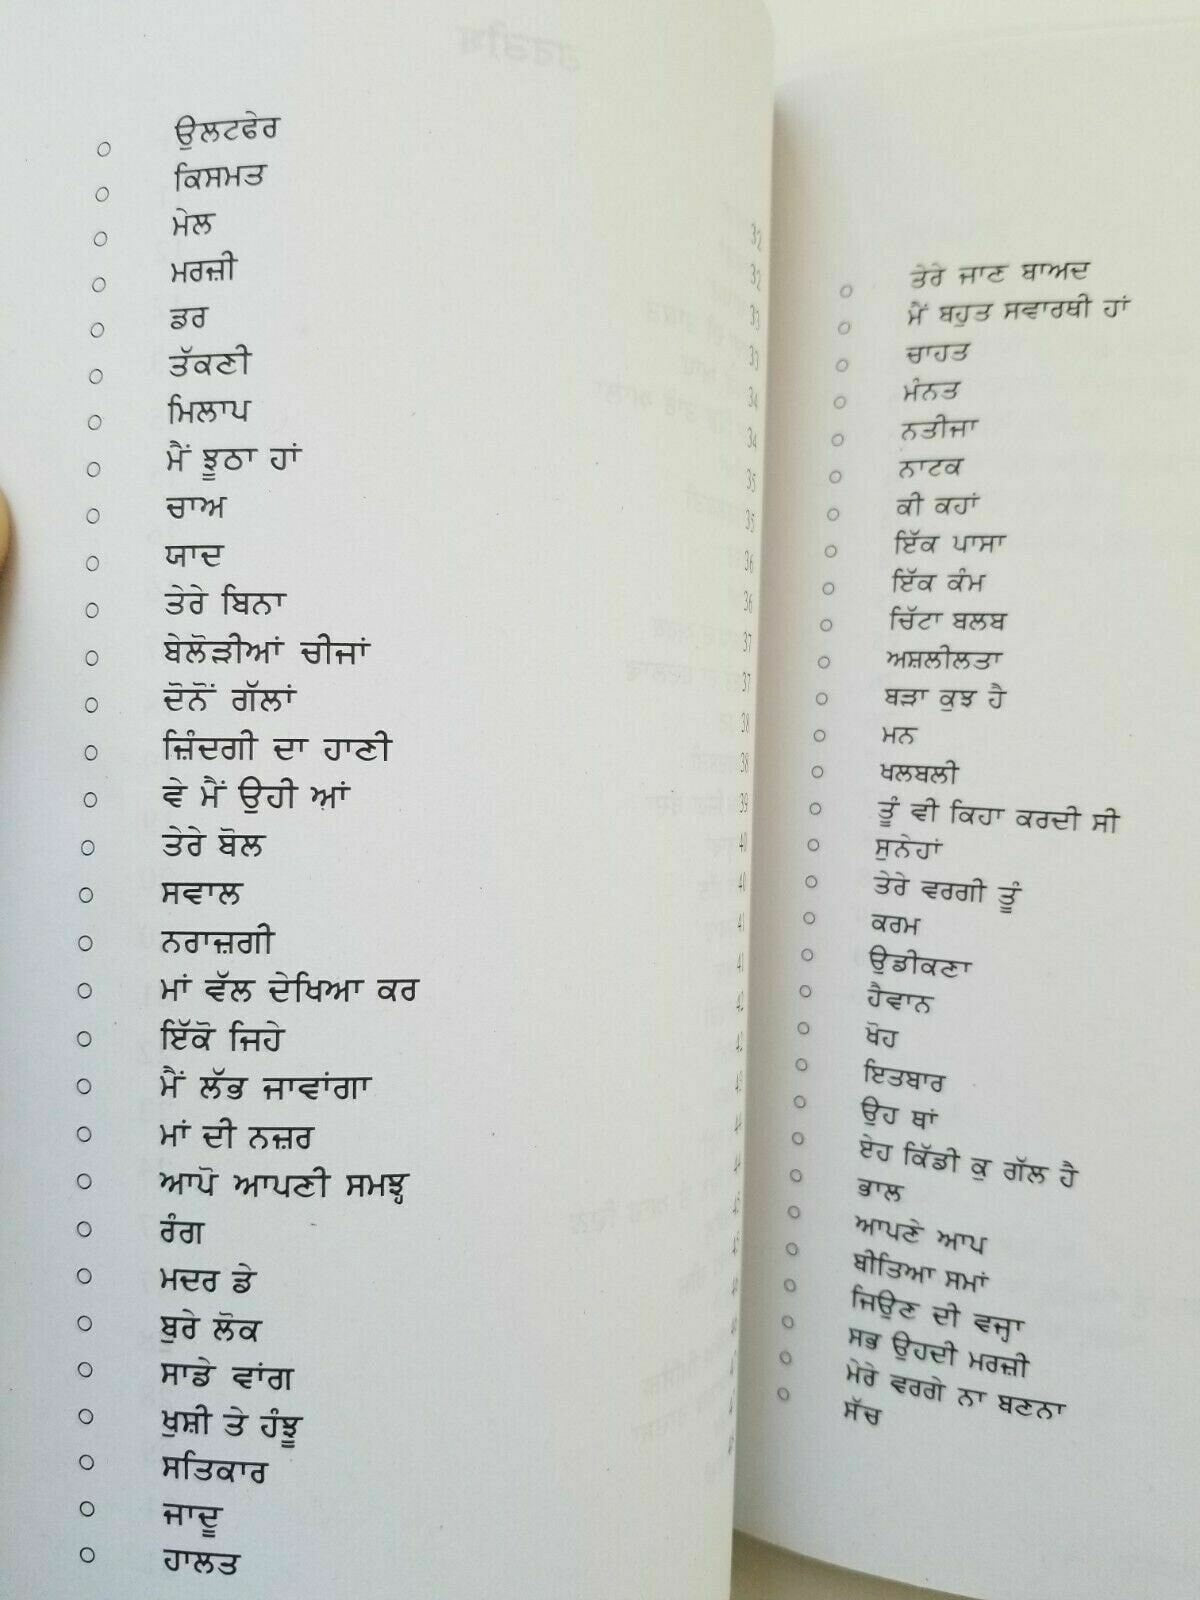 ਉਲਟਫੇਰ
ਕਿਸਮਤ
ਮੇਲ
ਮਰਜ਼ੀ
ਡਰ
ਤੱਕਣੀ
ਮਿਲਾਪ
ਮੈਂ ਝੂਠਾ ਹਾਂ
ਚਾਅ
ਯਾਦ
ਤੇਰੇ ਬਿਨਾ
ਬੇਲੋੜੀਆਂ ਚੀਜਾਂ
ਦੋਨੋਂ ਗੱਲਾਂ
ਜ਼ਿੰਦਗੀ ਦਾ ਹਾਣੀ
ਵੇ ਮੈਂ ਉਹੀ ਆਂ
ਤੇਰੇ ਬੋਲ
ਸਵਾਲ
ਨਰਾਜ਼ਗੀ
ਮਾਂ ਵੱਲ ਦੇਖਿਆ ਕਰ
ਇੱਕੋ ਜਿਹੇ
ਮੈਂ ਲੱਭ ਜਾਵਾਂਗਾ
ਮਾਂ ਦੀ ਨਜ਼ਰ
ਆਪੋ ਆਪਣੀ ਸਮਝ੍ਹ
ਰੰਗ
ਮਦਰ ਡੇ
ਬੁਰੇ ਲੋਕ
ਸਾਡੇ ਵਾਂਗ
ਖੁਸ਼ੀ ਤੇ ਹੰਝੂ
ਸਤਿਕਾਰ
ਜਾਦੂ
ਹਾਲਤ
32
32
33
33
34
34
35
35
36
36
37
37
38
38
39
40
40
41
41
42
42
43
44
44
45
45
ਤੇਰੇ ਜਾਣ ਬਾਅਦ
ਮੈਂ ਬਹੁਤ ਸਵਾਰਥੀ ਹਾਂ
ਚਾਹਤ
ਮੰਨਤ
ਨਤੀਜਾ
ਨਾਟਕ
ਕੀ ਕਹਾਂ
ਇੱਕ ਪਾਸਾ
ਇੱਕ ਕੰਮ
ਚਿੱਟਾ ਬਲਬ
ਅਸ਼ਲੀਲਤਾ
ਬੜਾ ਕੁਝ ਹੈ
ਮਨ
ਖਲਬਲੀ
ਤੂੰ ਵੀ ਕਿਹਾ ਕਰਦੀ ਸੀ
ਸੁਨੇਹਾਂ
ਤੇਰੇ ਵਰਗੀ ਤੂੰ
ਕਰਮ
ਉਡੀਕਣਾ
ਹੈਵਾਨ
ਖੋਹ
ਇਤਬਾਰ
ਉਹ ਥਾਂ
ਏਹ ਕਿੱਡੀ ਕੁ ਗੱਲ ਹੈ
ਭਾਲ
ਆਪਣੇ ਆਪ
ਬੀਤਿਆ ਸਮਾਂ
ਜਿਉਣ ਦੀ ਵਜ੍ਹਾ
ਸਭ ਉਹਦੀ ਮਰਜ਼ੀ
ਮੇਰੇ ਵਰਗੇ ਨਾ ਬਣਨਾ
ਸੱਚ